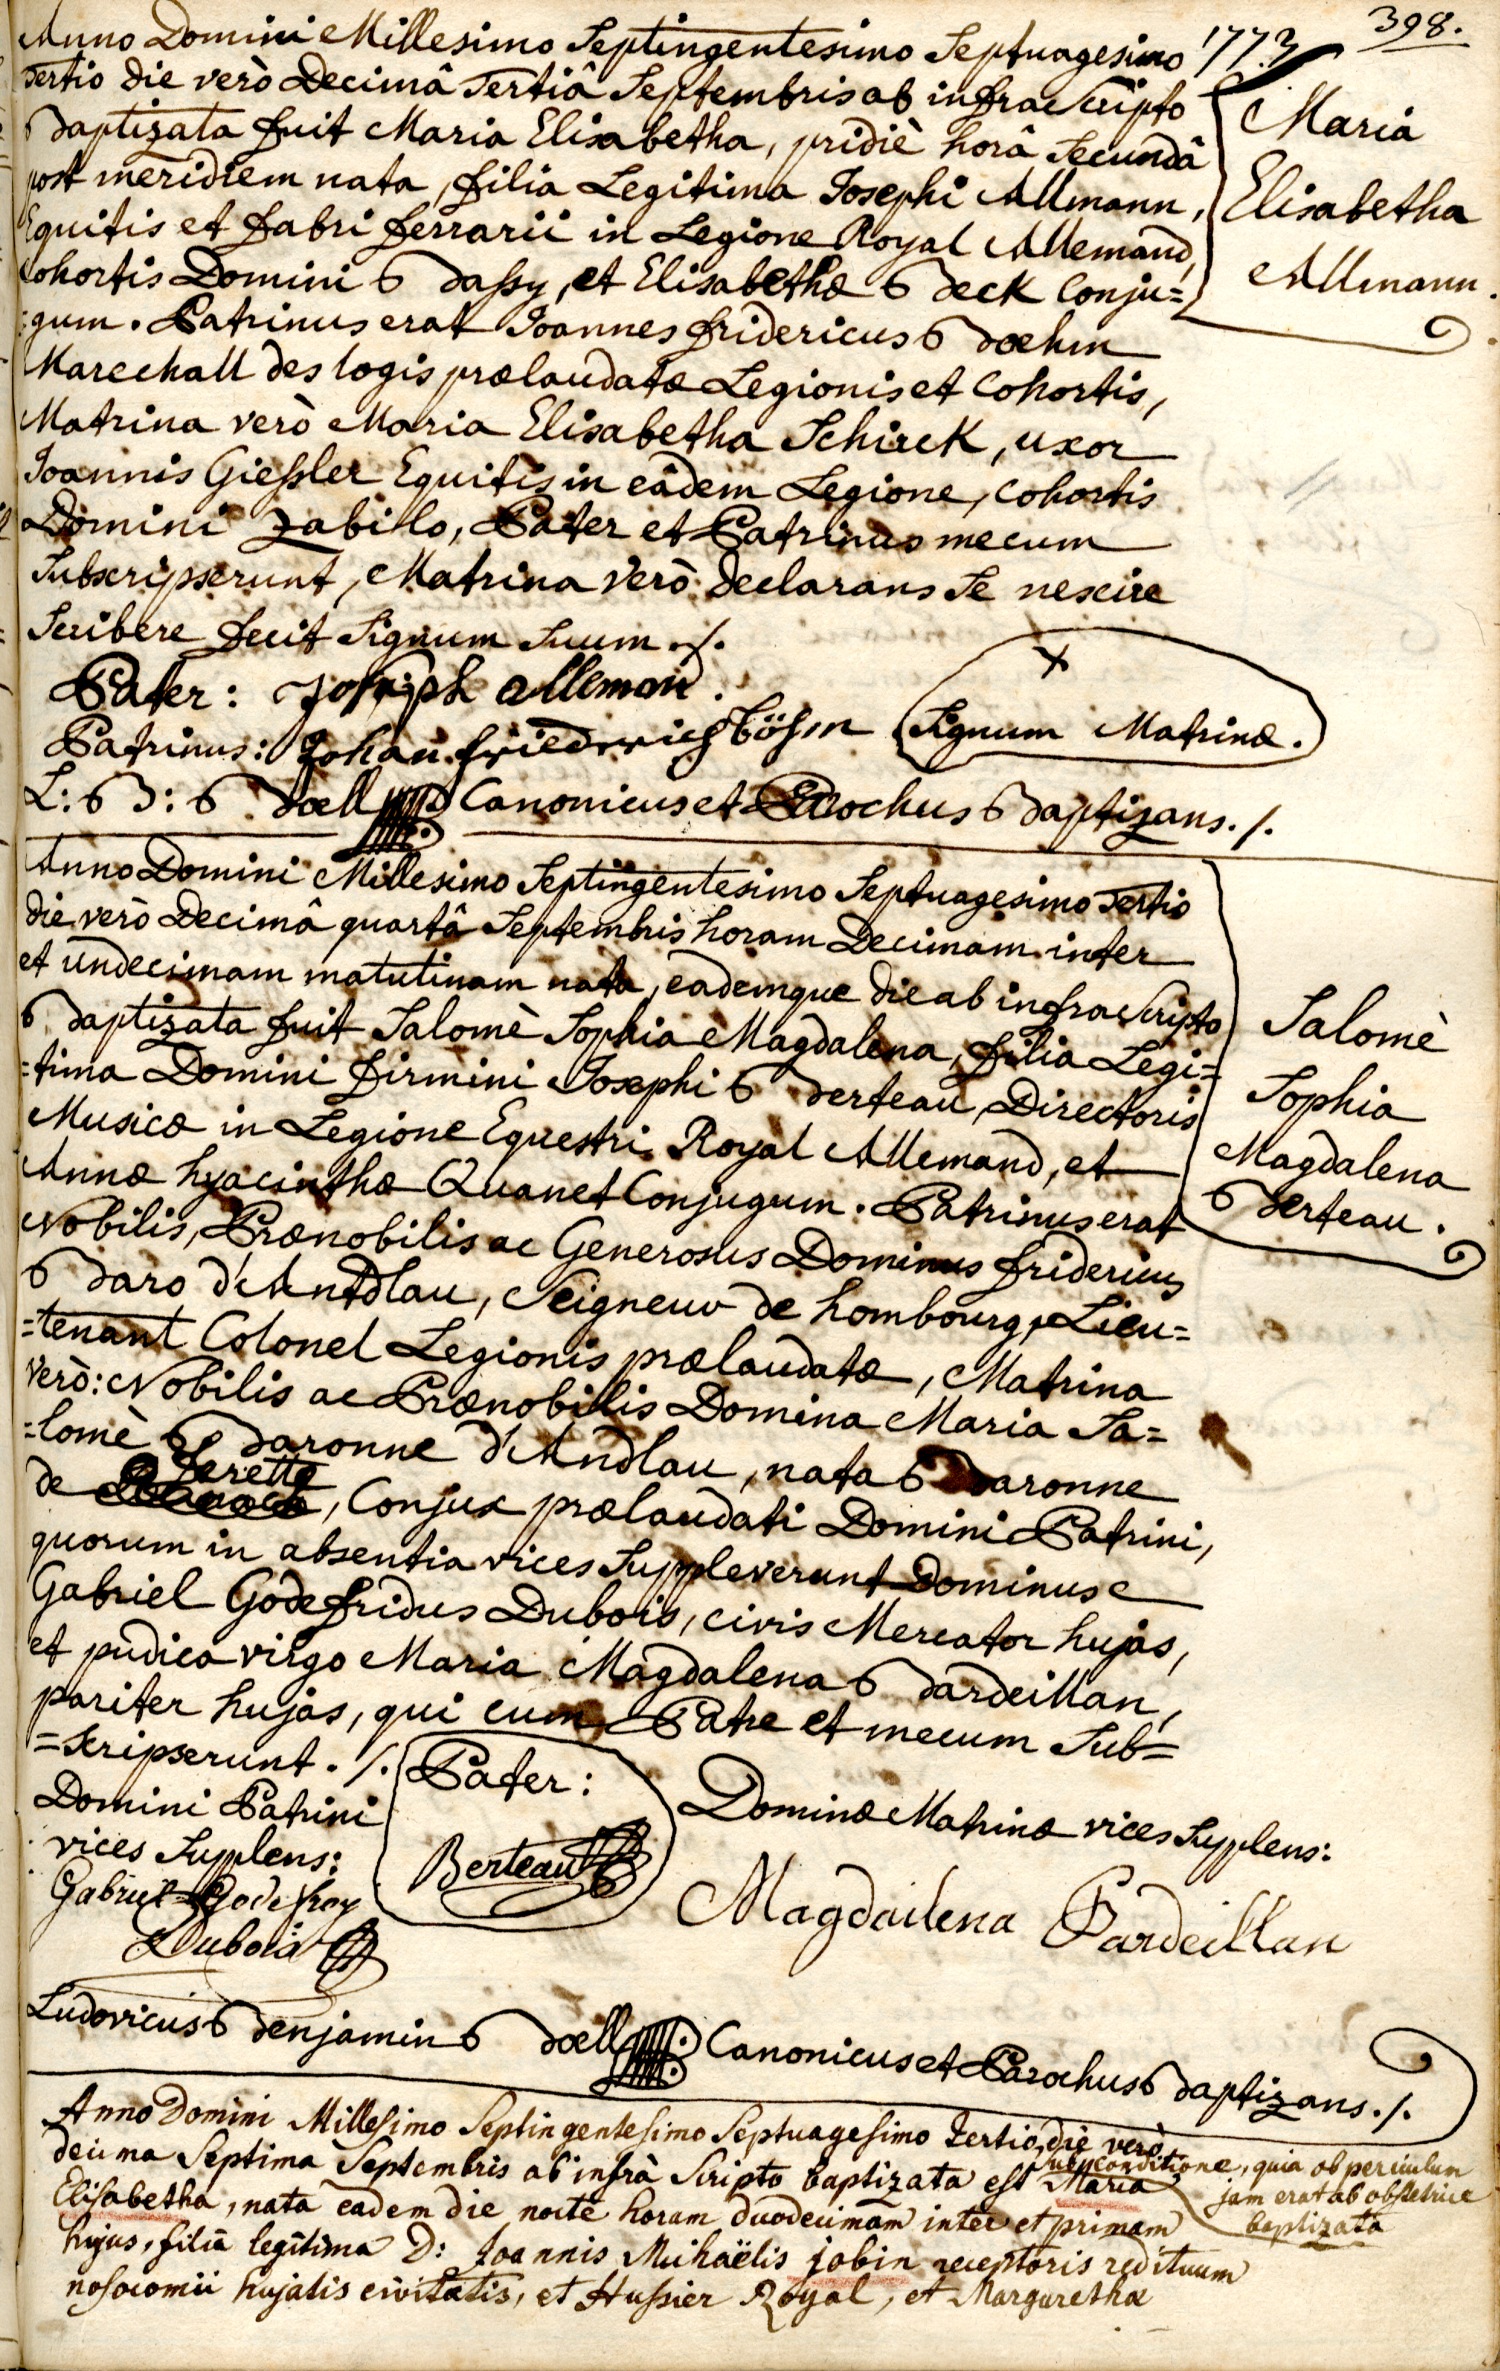 398.
1773
Anno Domini Millesimo Septingentesimo Septuagesimo
Tertio die verò Decimâ Tertiâ Septembris ab infra Scripto
Baptizata fuit Maria Elisabetha, pridiè horâ Secundâ
post meridiem nata, filia Legitima Josephi Allmann,
Equitis et fabri ferrarii in Legione Royal Allemand,
Cohortis Domini Bassy, et Elisabethæ Beck Conju=
=gum. Patrinus erat Joannes fridericus Boehm
Marechall des logis prælaudatæ Legionis et Cohortis,
Matrina verò Maria Elisabetha Schirck, uxor
Joannis Giessler Equitis in eâdem Legione, Cohortis
Domini Zabilo, Pater et Patrinus mecum
Subscripserunt, Matrina verò declarans Se nescire
Scribere fecit Signum Suum ./.
Maria
Elisabetha
Allmann.
Pater: Joseph allemon.
Patrinus: Johan friedrich Böhm
x
Signum Matrinæ.
L: B: Boell Canonicus et Parochus Baptizans ./.
Anno Domini Millesimo Septingentesimo Septuagesimo Tertio
die verò Decimâ quartâ Septembris horam Decimam inter
et undecimam matutinam nata, eademque die ab infra Scripto
Baptizata fuit Salomè Sophia Magdalena, filia Legi=
=tima Domini firmini Josephi Berteau, Directoris
Musicæ in Legione Equestri Royal Allemand, et
Annæ hyacinthæ Quanet Conjugum. Patrinus erat
Nobilis, Prænobilis ac Generosus Dominus fridericus
Baro d'Andlau, Seigneur de hombourg, Lieu=
=tenant Colonel Legionis prælaudatæ, Matrina
verò: Nobilis ac Prænobilis Domina Maria Sa=
=lomè Baronne d'Andlau, nata Baronne
de ferette, Conjux prælaudati Domini Patrini,
quorum in absentia vices Suppleverunt Dominus
Gabriel Godefridus Dubois, civis Mercator hujas,
et pudica virgo Maria Magdalena Bardeillan,
pariter hujas, qui cum Patre et mecum Sub=
=scripserunt ./.
Salomè
Sophia
Magdalena
Berteau.
Domini Patrini
vices Supplens:
Gabriel Godefroy
Dubois
Pater:
Berteau
Dominæ Matrinæ vices Supplens:
Magdailena Pardeillan
Ludovicus Benjamin Boell Canonicus et Parochus Baptizans ./.
Anno Domini Millesimo Septingentesimo Septuagesimo Tertio, die verò
decima Septima Septembris ab infrà Scripto baptizata est Maria
sub conditione, quia ob periculum
jam erat ab obstetrice
baptizata
Elisabetha, nata eadem die nocte horam duodecimam inter et primam
hujus, filia legitima D: Joannis Michaëlis jobin receptoris redituum
nosocomii hujatis civitatis, et Hussier Royal, et Margaretha